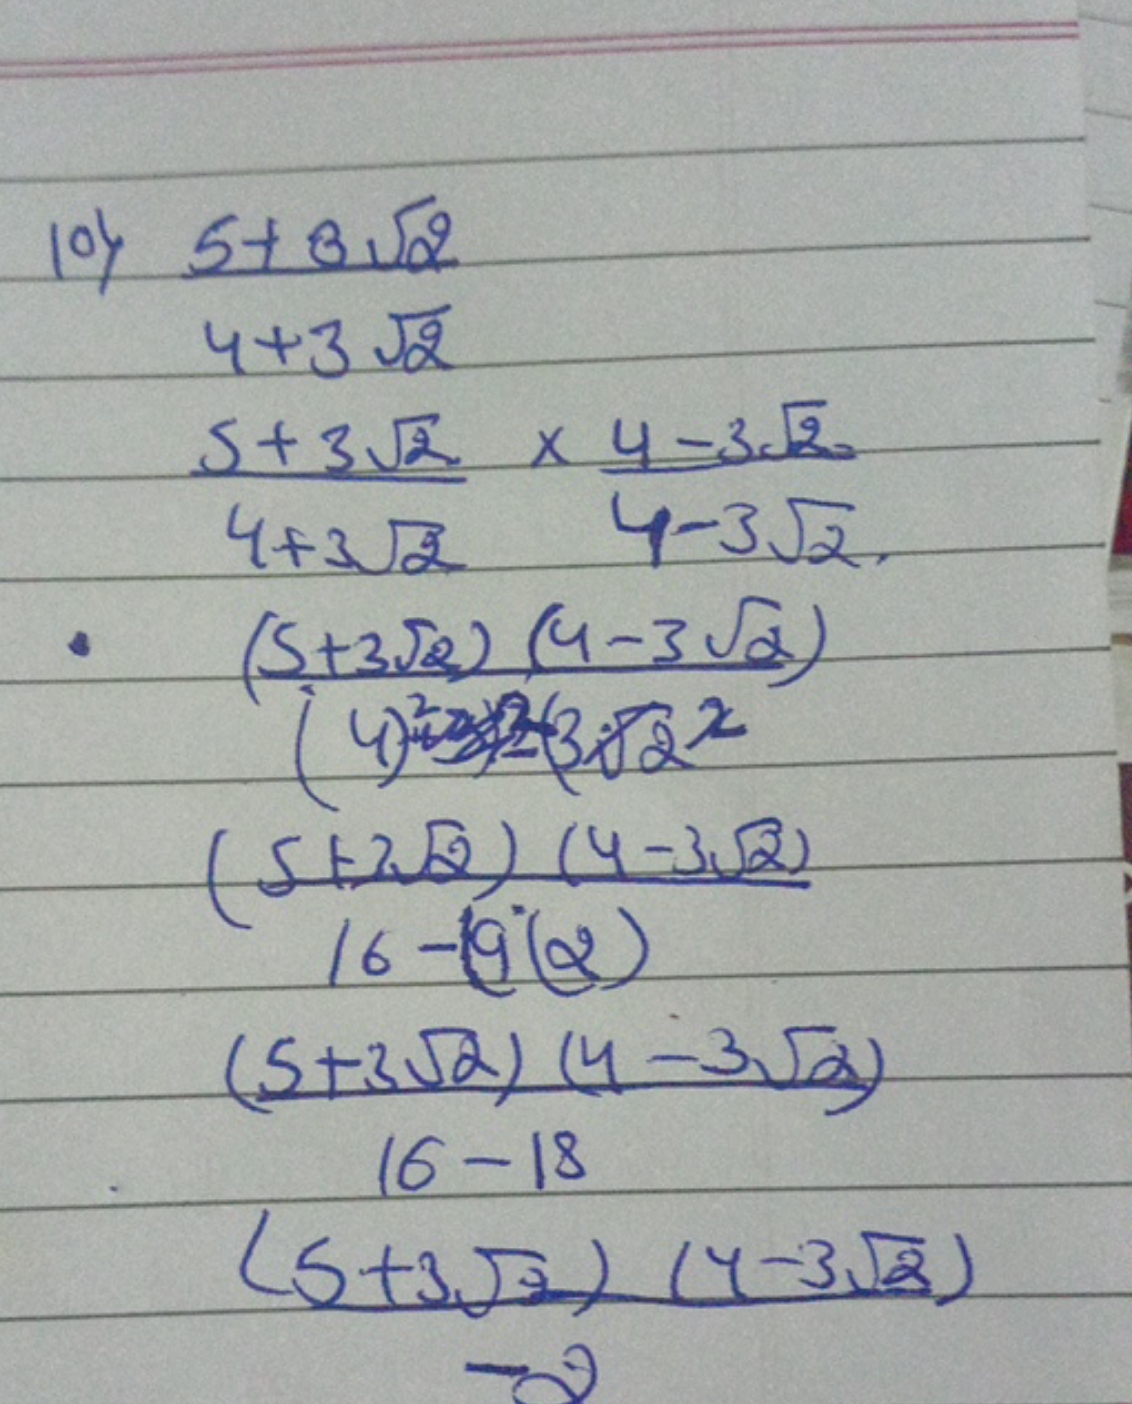 10) 5+3√2
4+3√2
5+3√2 × 4-3√2
4+3√2 4-3√2.
(5+3√2) (4-3√2)
(4)² (3√2²
(5+3√2) (4-3√2)
16-(9(2)
(5+3√2) (4-3√2)
16-18
(5+3√2) (4-3√2)
-2